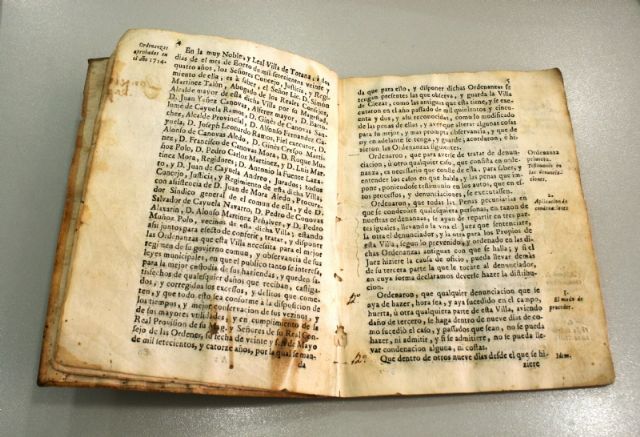 Ordenanzas
aprobadas en
el año 1724.
En la muy Noble, y Leal Villa de Totana, à los
dias de el mes de Enero de mil setecientos veinte y
quatro años, los Señores Concejo, Justicia, y Regi-
miento de ella, es à saber, el Señor Lic. D. Simón
Martinez Talón, Abogado de los Reales Consejos,
Alcalde mayor de esta dicha Villa por su Magestad,
D. Juan Canovas, Alferez mayor, D. Barto-
Ramos, D. Ginès de Canovas
cher, Alcalde Provincial, D. Alfonso Fernandez Ca-
yuela, D. Joseph Leonardo Barco, Fiel executor, D.
Alonso de Canovas Aledo, D. Ginès Crespo Marti-
nez, D. Francisco de Canovas Mora, D. Roque Mu-
ñoz Polo, D. Pedro Carlos Martinez, y D. Luis Mar-
tinez Mora, Regidores; D. Antonio la Fuente Lara,
y D. Juan de Cayuela Andreo, Jurados; todos
Concejo, Justicia, y Regimiento de esta dicha Villa,
con asistencia de D. Juan de Mora Aledo, Procura-
dor Sindico general de el comun de ella, y de D.
Salvador de Cayuela Navarro, D. Pedro de Canovas
Alarcin, D. Alonso Martinez Peñalver, y D. Pedro
Muñoz Polo, vecinos de esta dicha Villa; estando
assi juntos para efecto de conferir, tratar, y disponer
las Ordenanzas que esta Villa necessita para el mejor
regimen de su govierno comun, y observancia de sus
leyes municipales, en que el publico tanto se interesa,
para la mejor custodia de sus haciendas, y queden sa-
tisfechos de qualesquier daños que reciban, castiga-
dos, y corregidos los excessos, y delitos que come-
ten, y que todo ello sea conforme à la disposicion de
los tiempos, y mejor conservacion de sus vezinos, y
de sus mayores utilidades, y en cumplimiento de la
Real Provision de su Mag. y Señores de su Real Con-
sejo de las Ordenes, su fecha de veinte y seis de Mayo
de mil setecientos, y catorze años, por la qual se man-
da
5
da que para esto, y disponer dichas Ordenanzas se
tengan presentes las que observa, y guarda la Villa
de Ciezar, como las antiguas que esta tiene, y se exe-
cutaron en el año passado de mil quinientos, y cin-
cuenta y dos, y alu reconocidas, como lo modificado
de las penas de ellas, y averse de alterar algunas cosas
para su mejor, y mas prompta observancia, y que de
oy en adelante se tenga, y guarde; acordaron, è hi-
zieron las Ordenanzas siguientes.
Ordenaron, que para averse de tratar de denun-
ciacion, ù otro qualquier caso, que consista en orde-
nanza, es necessario que conste de ella, para saber, y
entender los casos en que habla, y las penas que im-
pone, poniendose testimonio en los autos, que en es-
tos processos, y denunciaciones, se executassen.
Ordenanza
primera.
Testimonio en
las denuncia-
ciones.
Ordenaron, que todas las Penas pecuniarias en
que se condenare qualesquiera personas, en razon de
nuestras ordenanzas, se ayan de repartir en tres par-
tes iguales, llevando la vna el Juez que sentenciare,
la otra el denunciador, y la otra para los Propios de
esta Villa, segun lo prevenido, y ordenado en las di-
chas Ordenanzas antiguas con que se halla; y si el
Juez hiziere la causa de oficio, pueda llevar demàs
de su tercera parte la que le tocare al denunciador,
en cuya forma declararon deverse hazer la distribu-
cion.
2.
Aplicacion de
condenaciones
Ordenaron, que qualquier denunciacion que se
aya de hazer, hora sea, y aya sucedido en el campo,
huerta, ù otra qualquiera parte de esta Villa, aviendo
daño de tercero, se haga dentro de nueve dias de co-
mo sucediò el caso, y passados que sean, no se pueda
hazer, ni admitir, y si se admitiere, no se pueda lle-
var condenacion alguna, ni costas.
3.
El modo de
proceder.
Que dentro de otros nueve dias desde el que se hi-
Idem.
ziere